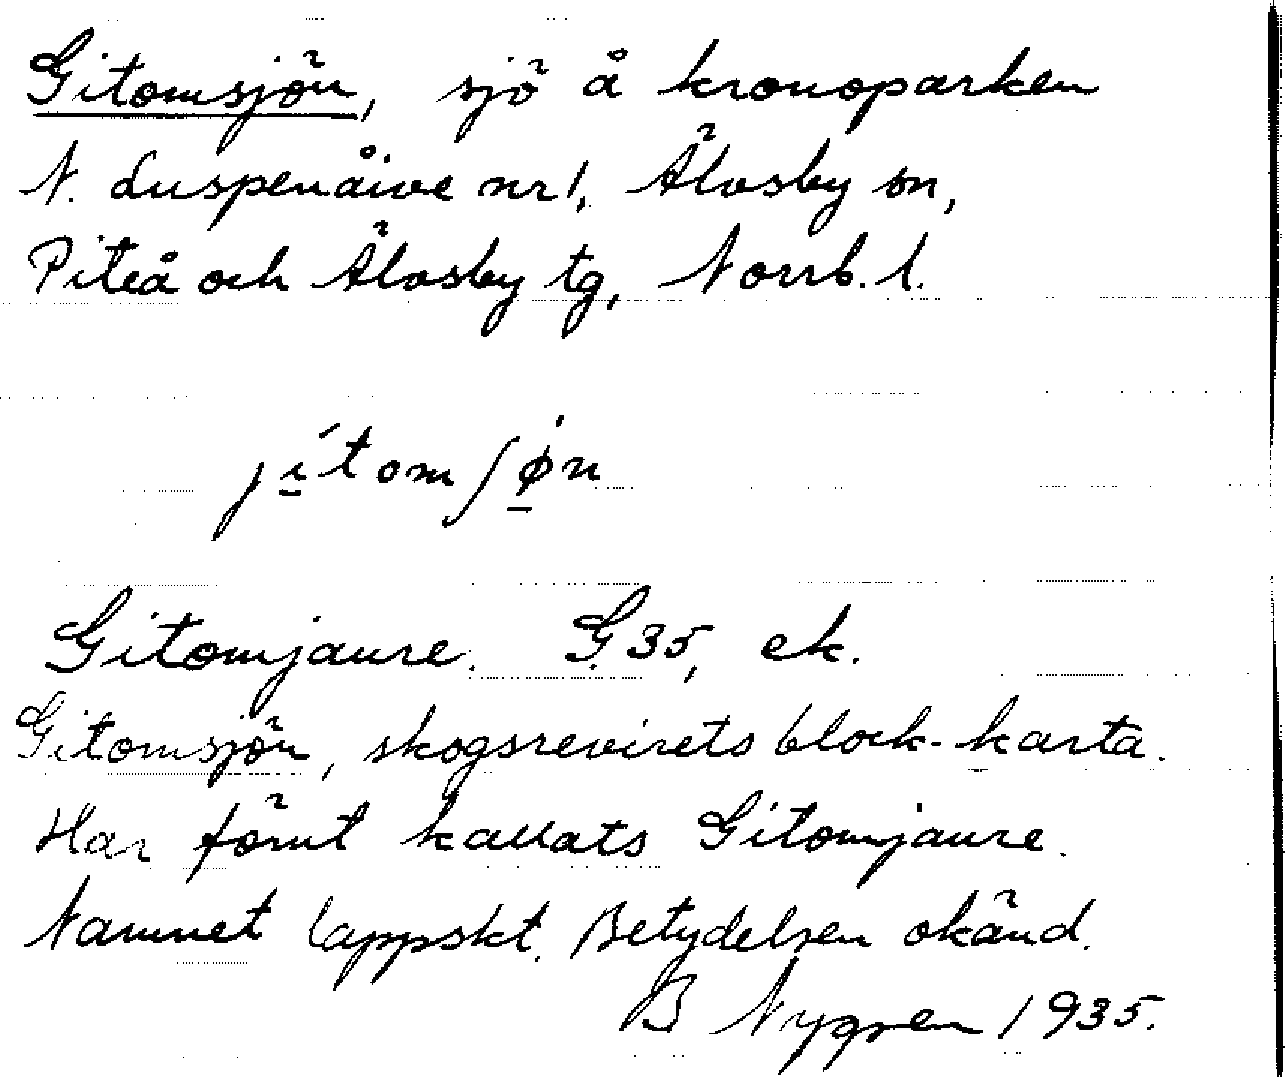 Gitomsjön, sjö å kronoparken
N. Luspenåive nr 1, Älvsby sn,
Piteå och Älvsby tg, Norrb. l.
jítomʃø̱n
Gitomjaure. G. 35, ek.
Gitomsjön, skogsrevirets block-karta.
Har förut kallats Gitomjaure.
Namnet lappskt. Betydelsen okänd.
B Nygren 1935.